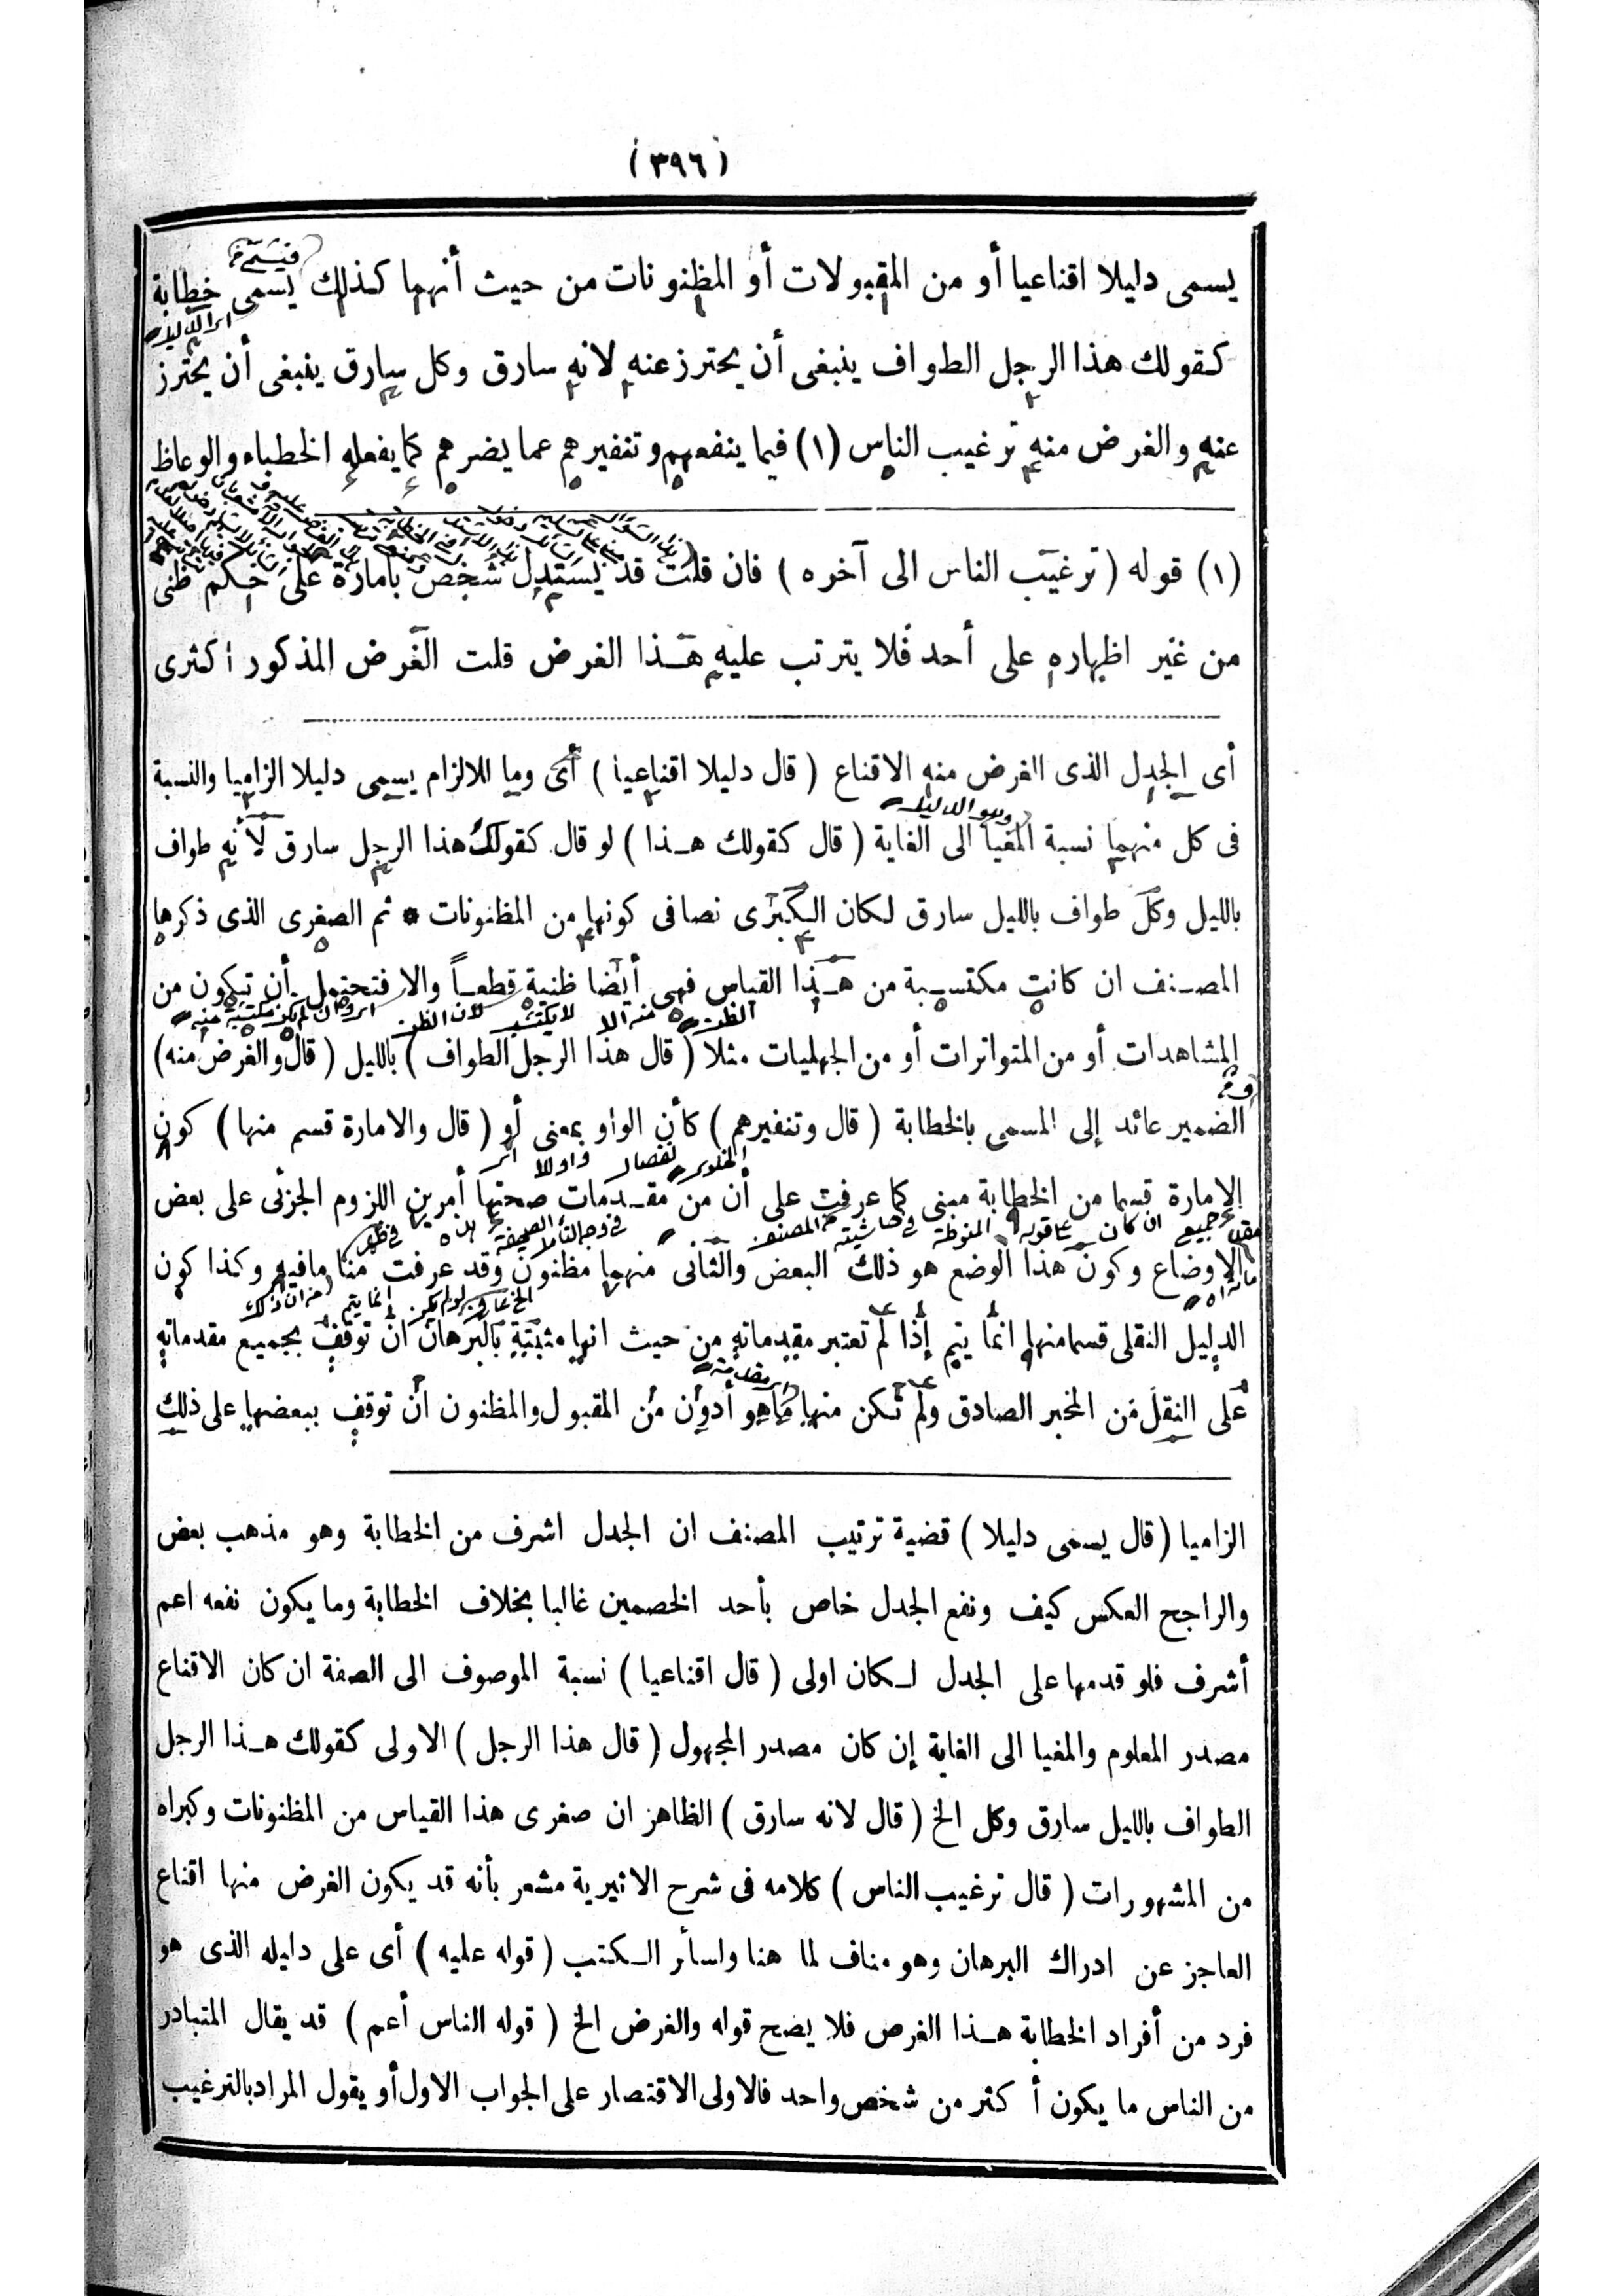 (٣٩٦)
يسمى دليلا اقناعيا أو من المقبولات أو المظنونات من حيث أنهما كذلك يسمى خطابة
كقولك هذا الرجل الطواف ينبغى أن يحترز عنه لانه سارق وكل سارق ينبغى أن يحترز
عنه والغرض منه ترغيب الناس (١) فيما ينفعهم وتنفيرهم عما يضرهم كما يفعله الخطباء والوعاظ
(١) قوله (ترغيب الناس الى آخره) فان قلت قد يستدل شخص بأمارة على حكم ظنى
من غير اظهاره على أحد فلا يترتب عليه هذا الغرض قلت الغرض المذكور أكثرى
أى الجدل الذى الغرض منه الاقناع (قال دليلا اقناعيا) أى وما للالزام يسمى دليلا الزاميا والنسبة
فى كل منهما نسبة المغيا الى الغاية (قال كقولك هذا) لو قال كقولك هذا الرجل سارق لأنه طواف
وهو الدليل
بالليل وكل طواف بالليل سارق لكان الكبرى نصا فى كونها من المظنونات * ثم الصغرى الذى ذكرها
المصنف ان كانت مكتسبة من هذا القياس فهى أيضا ظنية قطعاً والا فتحتمل أن تكون من
المشاهدات أو من المتواترات أو من الجهليات مثلا (قال هذا الرجل الطواف) بالليل (قال والغرض منه)
الضمير عائد إلى المسمى بالخطابة (قال وتنفيرهم) كأن الواو بمعنى أو (قال والامارة قسم منها) كون
الامارة قسما من الخطابة مبنى كما عرفت على أن من مقدمات صحتها أمرين اللزوم الجزئى على بعض
الاوضاع وكون هذا الوضع هو ذلك البعض والثانى منهما مظنون وقد عرفت منا مافيه وكذا كون
الدليل النقلى قسما منها انما يتم إذا لم تعتبر مقدماته من حيث انها مثبتة بالبرهان ان توقف بجميع مقدماته
على النقل من المخبر الصادق ولم تكن منها ماهو أدون من المقبول والمظنون ان توقف ببعضها على ذلك
الزاميا (قال يسمى دليلا) قضية ترتيب المصنف ان الجدل اشرف من الخطابة وهو مذهب بعض
والراجح العكس كيف ونفع الجدل خاص بأحد الخصمين غالبا بخلاف الخطابة وما يكون نفعه اعم
أشرف فلو قدمها على الجدل لكان اولى (قال اقناعيا) نسبة الموصوف الى الصفة ان كان الاقناع
مصدر المعلوم والمغيا الى الغاية إن كان مصدر المجهول (قال هذا الرجل) الاولى كقولك هذا الرجل
الطواف بالليل سارق وكل الخ (قال لانه سارق) الظاهر ان صغرى هذا القياس من المظنونات وكبراه
من المشهورات (قال ترغيب الناس) كلامه فى شرح الاثيرية مشعر بأنه قد يكون الغرض منها اقناع
العاجز عن ادراك البرهان وهو مناف لما هنا ولسائر الكتب (قوله عليه) أى على دليله الذى هو
فرد من أفراد الخطابة هذا الغرص فلا يصح قوله والغرض الخ (قوله الناس أعم) قد يقال المتبادر
من الناس ما يكون أكثر من شخص واحد فالاولى الاقتصار على الجواب الاول أو يقول المراد بالترغيب